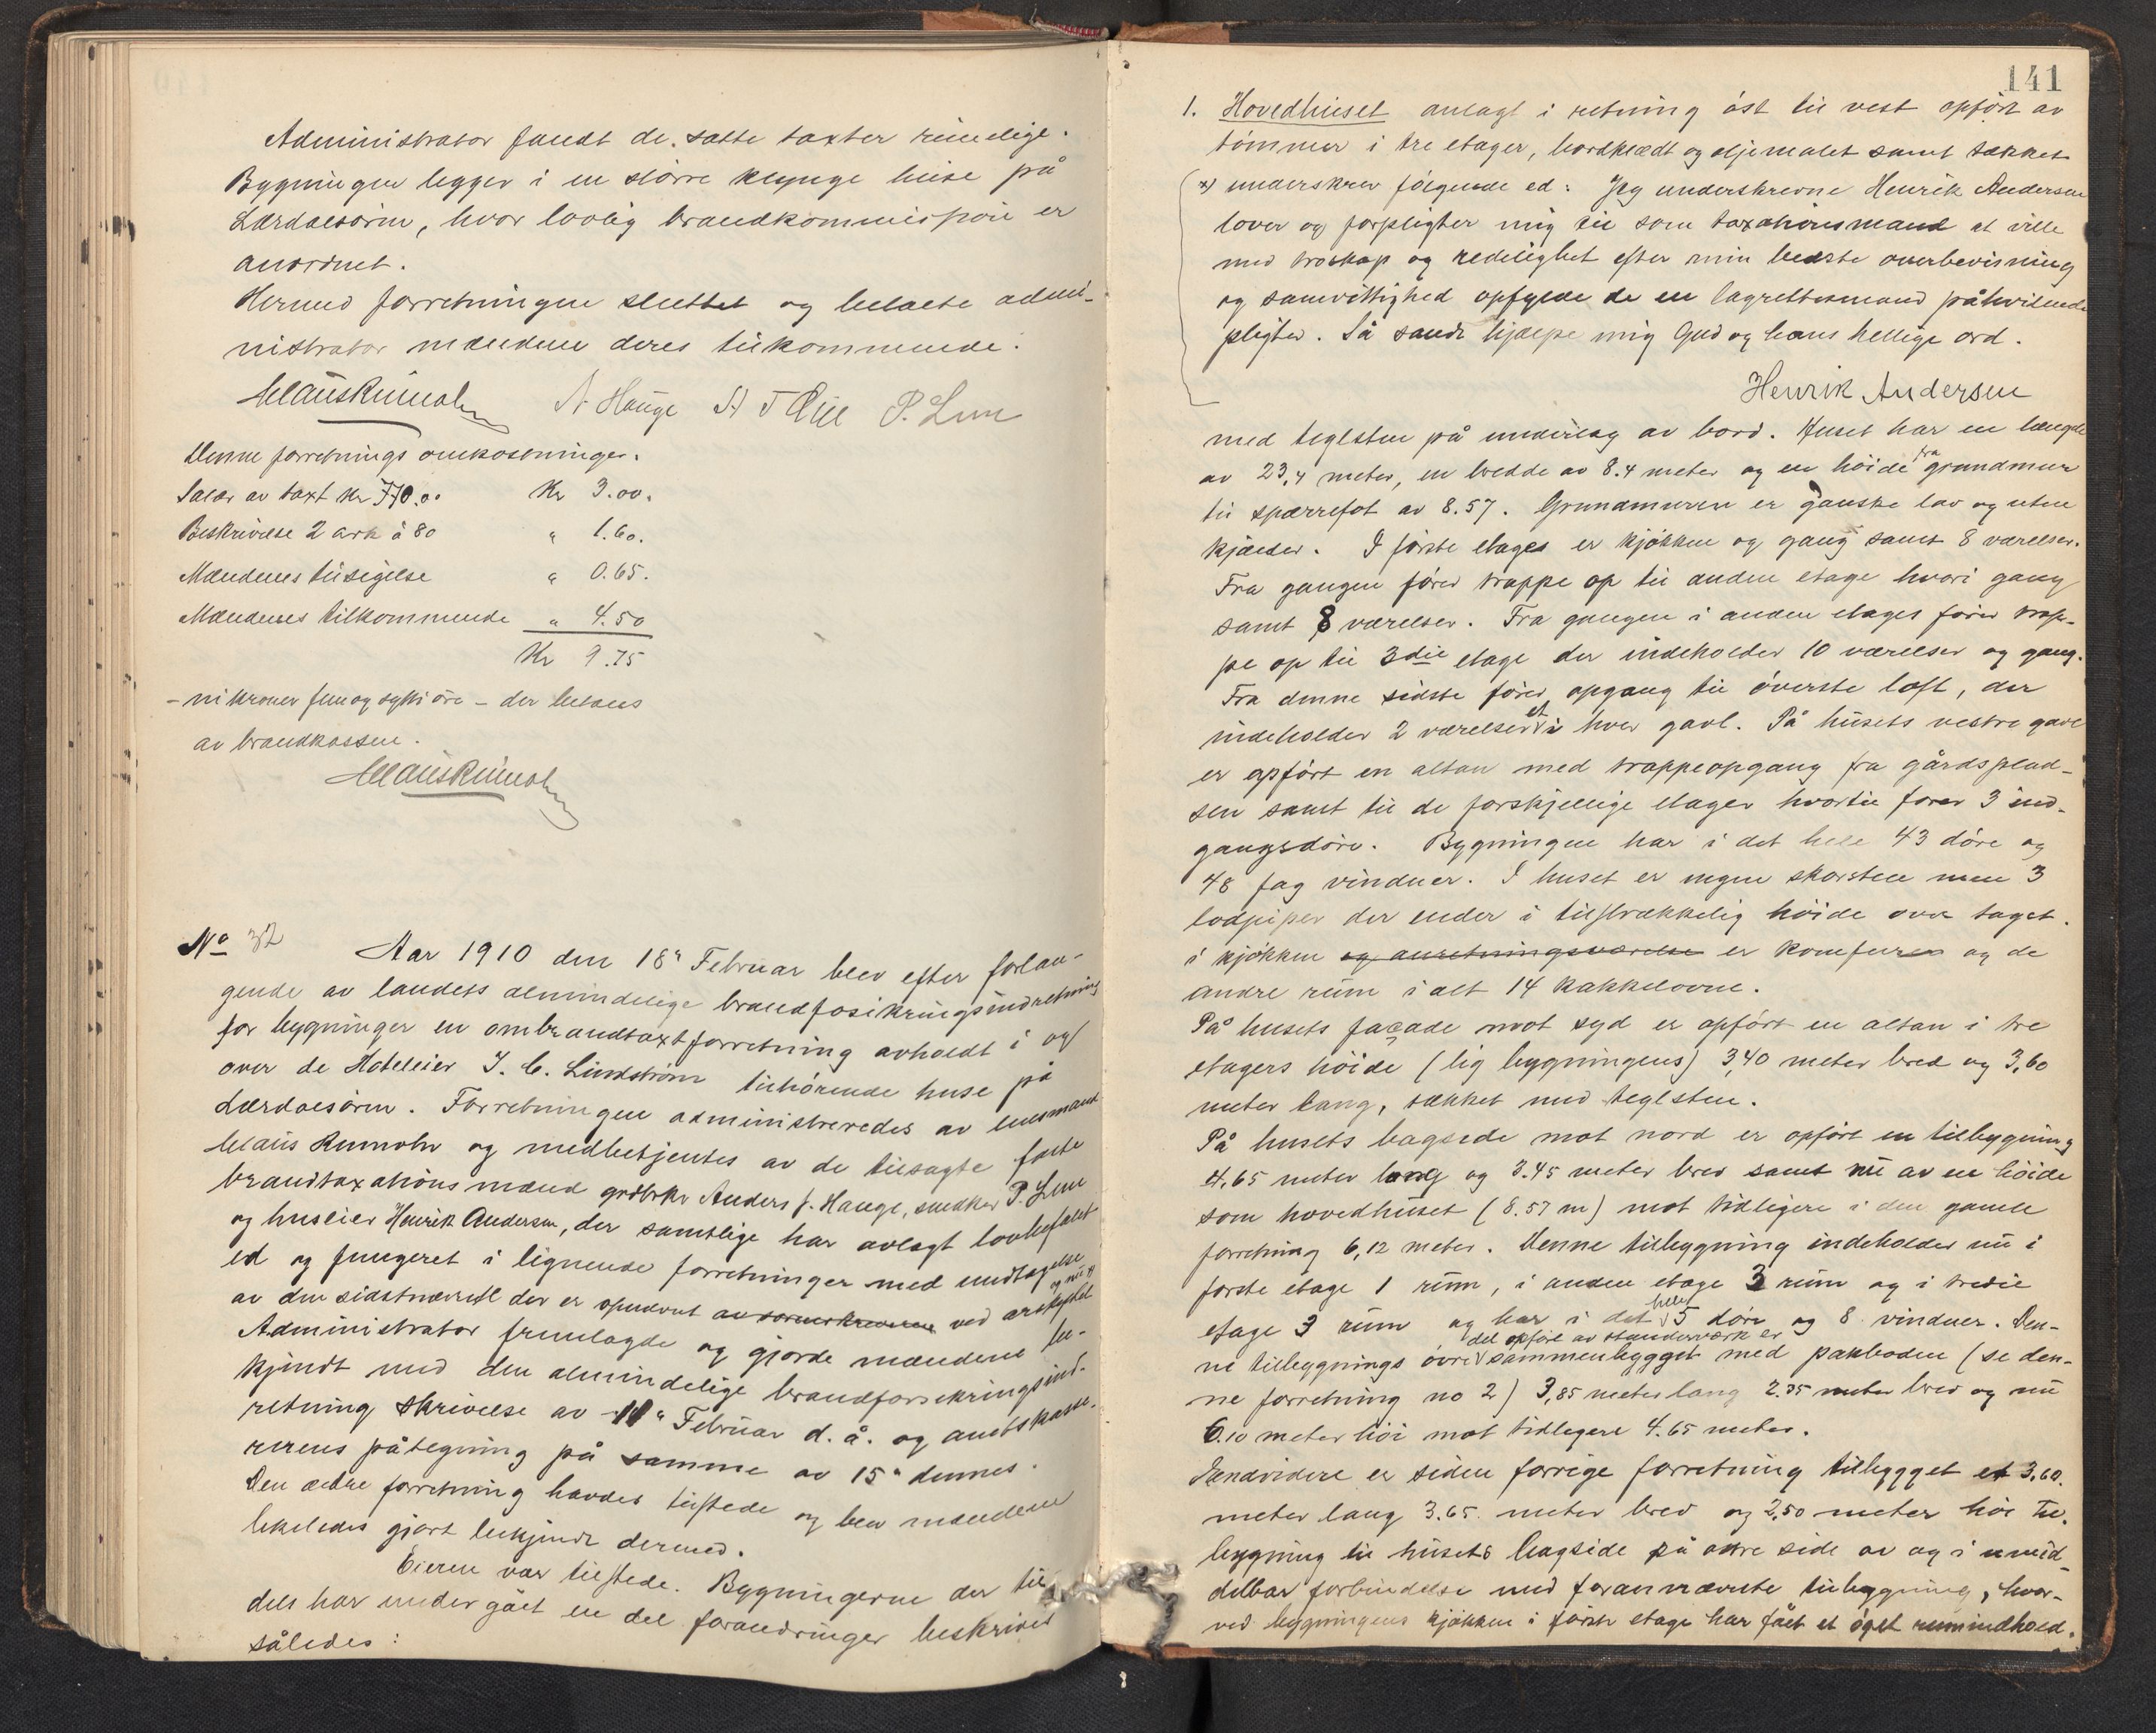 Administrator fandt de satte taxter rimelige.
Bygningen ligger i en större klynge huse på
Lærdalsören, hvor lovlig brandkommission er
anordnet.
Hermed forretningen sluttet og betalte admi-
nistrator mændene deres tilkommende.
Claus Rumohr A Hauge P. Lem
Denne forretnings omkostninger.
Salær av taxt kr 770.00 Kr 3.00.
Beskrivelse 2 ark á 80 " 1.60.
Mændenes tilsigelse " 0.65.
Mændenes tilkommende " 4.50
Kr 9.75
- ni kroner fem og sytti öre - der betales
av brandkassen.
Claus Rumohr
No 32 Aar 1910 den 18" Februar blev efter forlan-
gende av landets almindelige brandforsikringsindretning
for bygninger en ombrandtaxtforretning avholdt i og
over de Hoteleier J. C. Lindström tilhörende huse på
Lærdalsören. Forretningen administreredes av lensmand
Claus Rumohr og medbetjentes av de tilsagte faste
brandtaxationsmænd grdbrkr Anders J. Hauge, snedker P. Lem
og huseier Henrik Andersen, der samtlige har avlagt lovbefalet
ed og fungeret i lignende forretninger med undtagelse
av den sidstnævnte der er opnævnt av sorenskriveren ved
Administrator fremlagde og gjorde mændene be-
kjendt med den almindelige brandforsikringsind-
retning skrivelse av 11" Februar d. å. og amtskasse-
rerens påtegning på samme av 15" dennes.
Den ældre forretning havdes tilstede og blev mændene
likeledes gjort bekjendt dermed.
Eieren var tilstede. Bygningerne der til
dels har undergået en del forandringer beskrives
således:
141
1. Hovedhuset anlagt i retning öst til vest opfört av
tömmer i tre etager, bordklædt og oljemalet samt tækket
x) underskrev fölgende ed: Jeg underskrevne Henrik Andersen
lover og forpligter mig til som taxationsmand at ville
med troskap og redelighet efter min bedste overbevisning
og samvittighed opfylde de en lagrettesmand påhvilende
pligter. Så sandt hjælpe mig Gud og hans hellige ord.
Henrik Andersen
med teglsten på underlag av bord. Huset har en længde
av 23,4 meter, en bredde av 8.4 meter og en höide fra grundmur
til sparrefot av 8.57. Grundmuren er ganske lav og uten
kjælder. I förste etages er kjökken og gang samt 8 værelser.
Fra gangen förer trappe op til anden etage hvori gang
samt 8 værelser. Fra gangen i anden etages förer trap-
pe op til 3die etage der indeholder 10 værelser og gang.
Fra denne sidste förer opgang til överste loft, der
indeholder 2 værelser et i hver gavl. På husets vestre gavl
er opfört en altan med trappeopgang fra gårdsplad-
sen samt til de forskjellige etager hvortil förer 3 ind-
gangsdöre. Bygningen har i det hele 43 döre og
48 fag vinduer. I huset er ingen skorsten men 3
lodpiper der ender i tilstrækkelig höide over taget.
i kjökken og anretningsværelse er komfurer og de
andre rum i alt 14 kakkelovne.
På husets façade mot syd er opfört en altan i tre
etagers höide (lig bygningens) 3,40 meter bred og 3,60
meter lang, tækket med teglsten.
På husets bagside mot nord er opfört en tilbygning
4.65 meter lang og 3.45 meter bred samt nu av en höide
som hovedhuset (8.57 m) mot tidligere i den gamle
forretning 6,12 meter. Denne tilbygning indeholder nu i
förste etage 1 rum, i anden etage 3 rum og i tredie
etage 3 rum og har i det hele 5 döre og 8 vinduer. Den-
ne tilbygnings övre del opfört av stenderværk er sammenbygget med pakboden (se den-
ne forretning no 2) 3,85 meter lang 2.35 meter bred og nu
6.10 meter höi mot tidligere 4.65 meter.
Endvidere er siden forrige forretning tilbygget et 3.60
meter lang 3.65 meter bred og 2,50 meter höi til-
bygning til husets bagside på side av og i umid-
delbar forbindelse med forannævnte tilbygning, hvor-
ved bygningens kjökken i förste etage har fået et öget rumindhold.